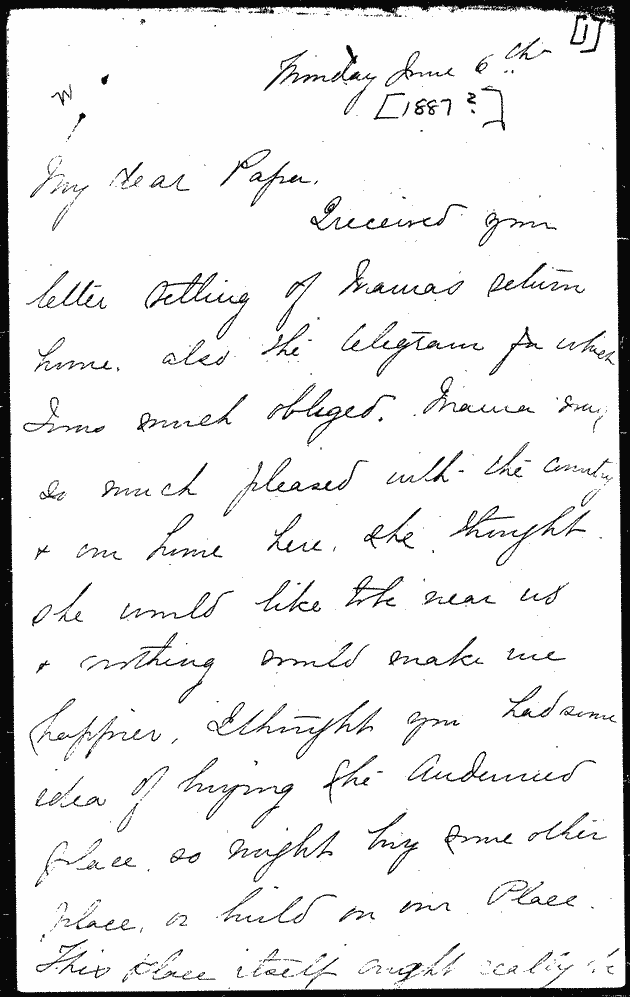 [1]
Monday June 6th
[1887?]
My dear Papa.
I received your
letter telling of Mama's return
home. also the telegram for which
I was much obliged. Mama was
so much pleased with the country
& our home here. She thought
she would like to be near us
& nothing would make me
happier. I thought you had some
idea of buying the
place. so might buy some other
place. or build on our Place.
This place itself ought really be